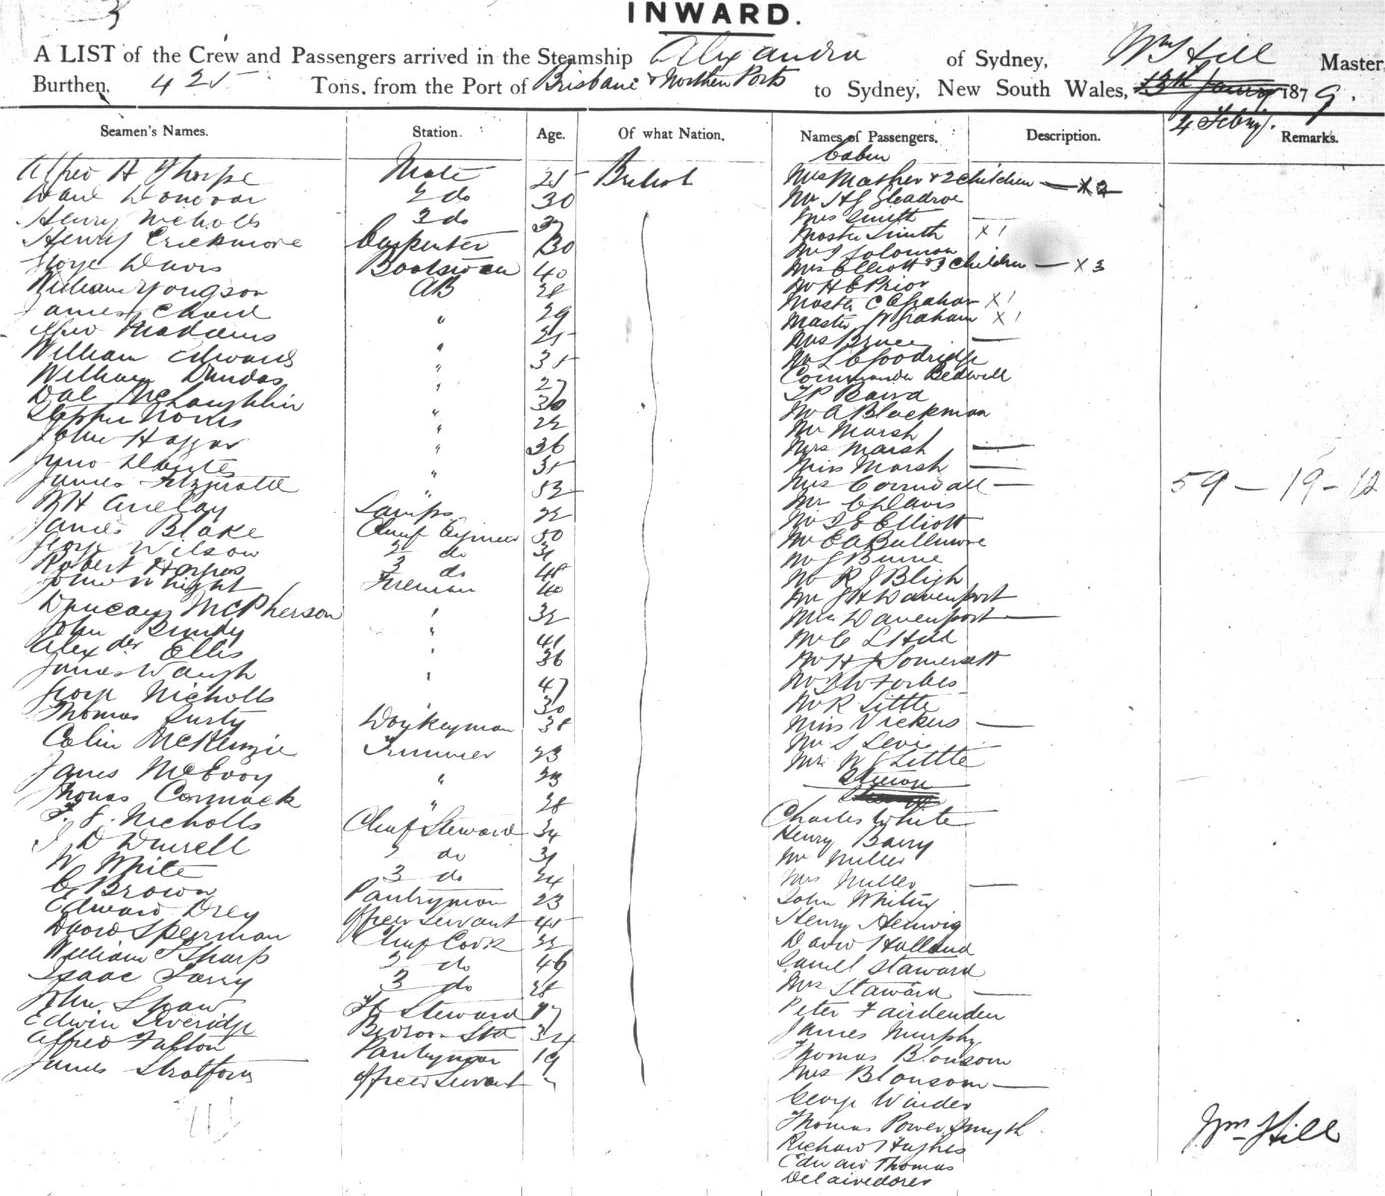 3
INWARD.
A LIST of the Crew and Passengers arrived in the Steamship Alexandra of Sydney, Wm Hill Master,
Burthen, 425 Tons, from the Port of Brisbane & Northern Ports to Sydney, New South Wales, 13th 1879.
4 Feby.
Seamen's Names. Station. Age. Of what Nation. Names of Passengers. Description. Remarks.
Alfred H Thorpe Mate 25 British
Donovan 2 do 30
Henry Nicholls 3 do
Henry Crickmore Carpenter 30
George Davis Boatswain 40
William Yongson AB 28
James Chard " 29
Maddams " 25
William Edwards " 35
William Dundas " 27
McLaughlin " 30
Stephen Norris " 22
John Haggar " 36
" 35
James " 52
RH Anelay Lamps 22
James Blake Chief Engineer 50
George Wilson 2 do 31
Robert 3 do 48
John Wright Fireman 40
Duncan McPherson " 32
John Bundy " 41
Alexander Ellis " 36
James Waugh " 47
George Nicholls 30
Thomas Donkeyman 38
Colin McKenzie Trimmer 23
James McEvoy " 23
Thomas Cormack " 28
F. J. Nicholls Chief Steward 34
J D Durrell 2 do 31
W White 3 do 24
C Brown Pantryman 23
Edward Drey Officer Servant 45
David Spearman Chief Cook 32
William Tharp 2 do 46
Isaac Larry 3 do 28
John Shaw Steward
Edwin Liveridge Bedroom Std 34
Alfred Fulton Pantryman 19
James Stratford Officer Servant "
Cabin
Mrs Mather & 2 Children — X 2
Mr H J Gleadroe
Mrs Smith —
Master Smith X 1
Mr J Solomon
Mrs Elliott & 3 Children — X 3
Mr H C Prior
Master C Graham X 1
Master W Graham X 1
Mrs Bruce —
Mr L C Goodridge
Commander Bedwell
T P Baird
Mr A Blackman
Mr Marsh
Mrs Marsh —
Miss Marsh —
Mrs Corrindall —
Mr C Davis
Mr Elliott
Mr E A Bullmore
Mr J Burne
Mr R J Bligh
Mr J H Davenport
Mrs Davenport —
Mr C L Hill
Mr H J Somersett
Mr D W Forbes
Mr R Little
Miss Vickers —
Mr S Levi
Mr W J Little
Charles White
Henry Barry
Mr Miller
Mrs Miller —
John Whiting
Henry Helwig
David Holland
Samuel Staward
Mrs Staward —
Peter Fairdenden
James Murphy
Thomas Blonsom
Mrs Blonsom —
George Winder
Thomas Power Smyth
Richard Hughes
Edward Thomas
Delairedores
59 — 19 — 12
Wm Hill